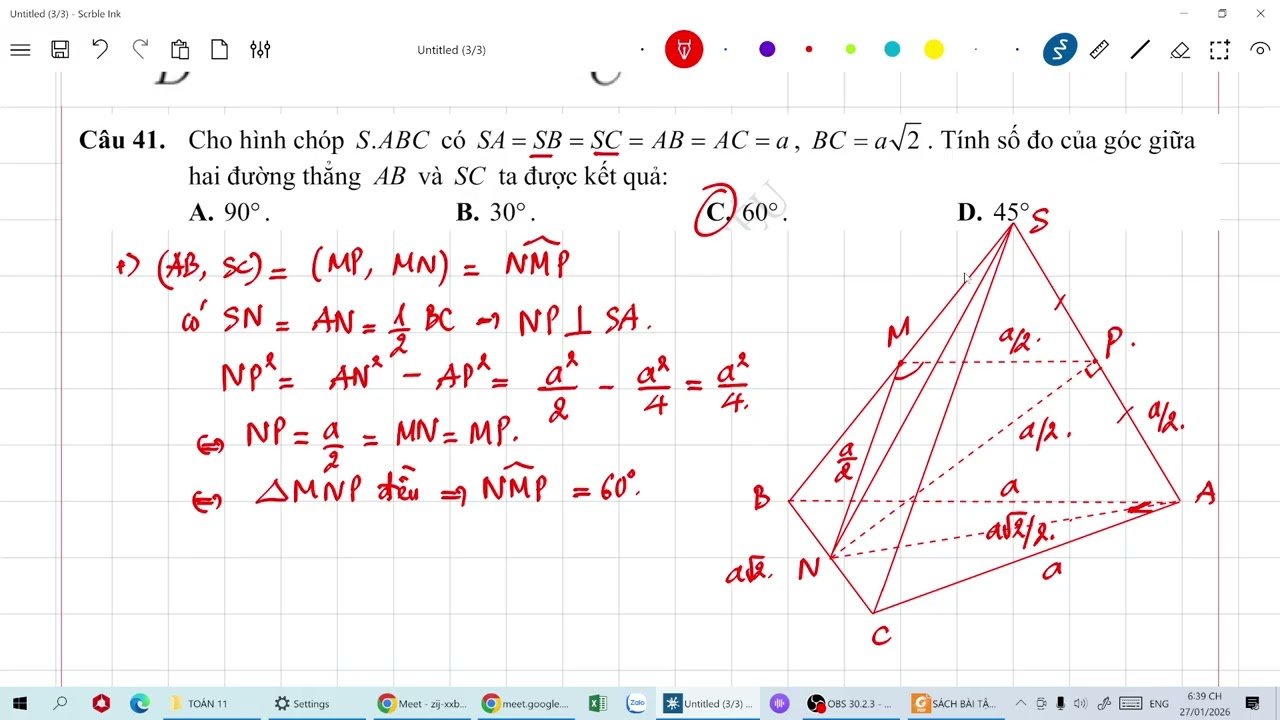 Untitled (3/3) - Scrble Ink
Untitled (3/3)
D C
Câu 41. Cho hình chóp S.ABC có SA = SB = SC = AB = AC = a, BC = a√2. Tính số đo của góc giữa
hai đường thẳng AB và SC ta được kết quả:
A. 90°. B. 30°. C. 60°. D. 45°
(AB, SC) = (MP, MN) = NMP
có SN = AN = 1/2 BC → NP ⊥ SA.
NP² = AN² - AP² = a²/2 - a²/4 = a²/4.
⇔ NP = a/2 = MN = MP.
⇔ △MNP đều ⇒ NMP = 60°.
S
M a/2. P.
a/2 a/2. a/2.
B a A
a√2/2.
a√2. N a
C
TOÁN 11 Settings Meet - zij-xxb... meet.google.... Zalo Untitled (3/3) ... OBS 30.2.3 - ... SÁCH BÀI TẬ... 6:39 CH
27/01/2026